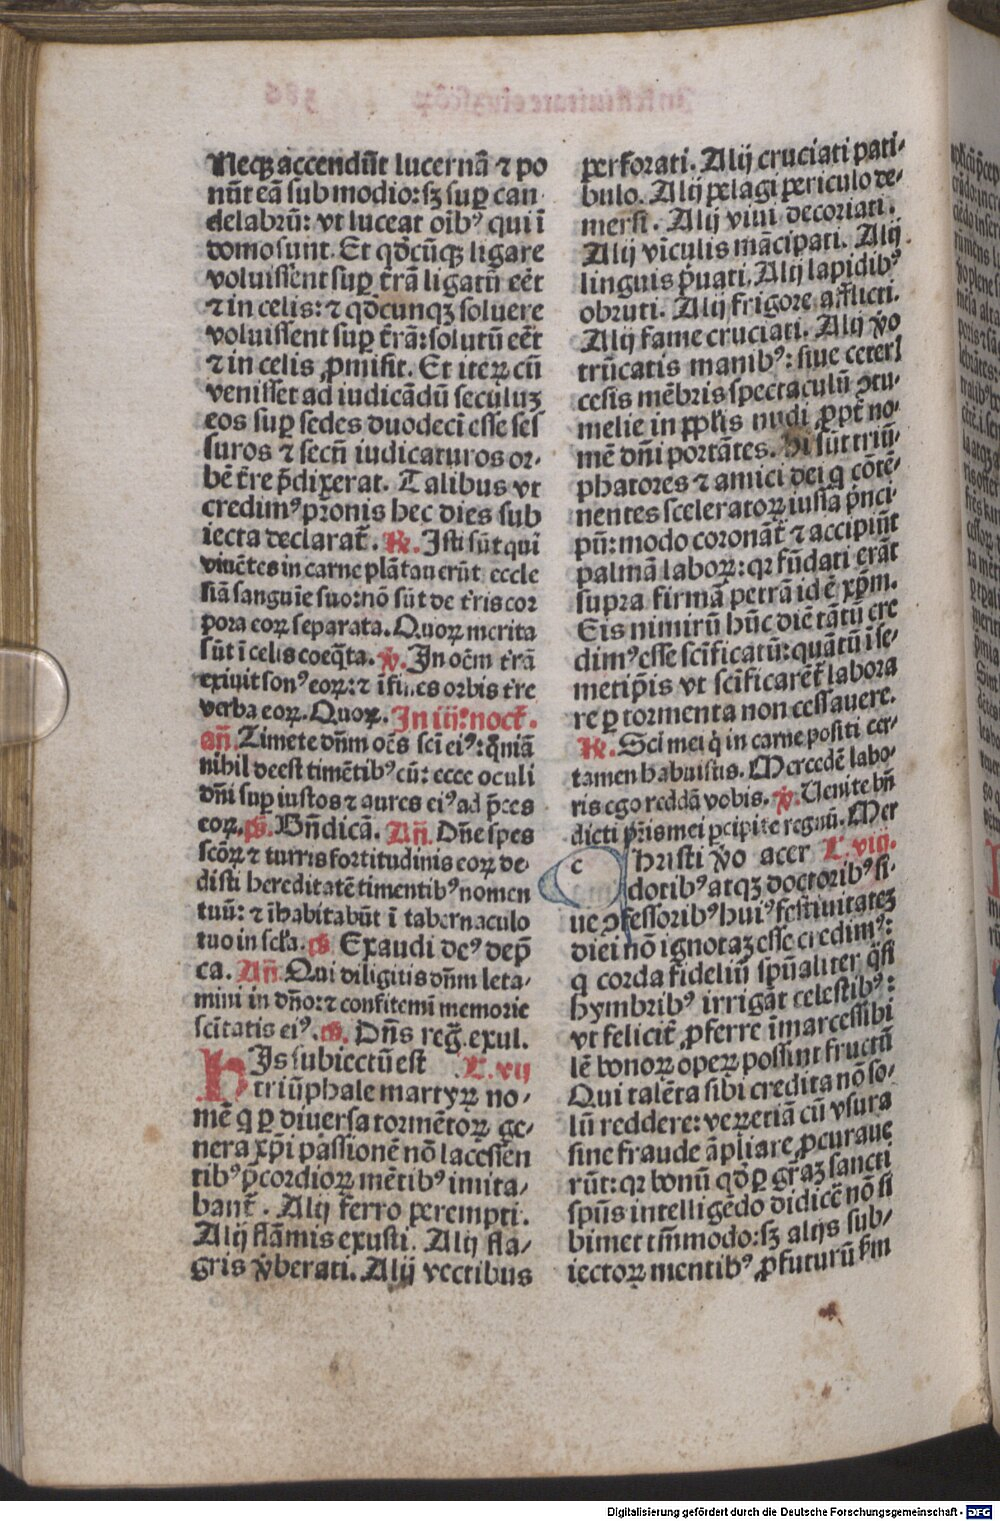 Neqꝫ accendūt lucernā ⁊ po
nūt eā sub modio: sꝫ suꝑ can
delabrū: vt luceat oībꝰ qui ī
domo sunt. Et qđcūqꝫ ligare
voluissent suꝑ t̄rā ligatū eēt
⁊ in celis: ⁊ qđcunqꝫ soluere
voluissent suꝑ t̄rā: solutū eēt
⁊ in celis ꝓmisit. Et iteꝝ cū
venisset ad iudicādū seculuꝫ
eos suꝑ sedes duodecī esse ses
suros ⁊ secū iudicaturos or⸗
bē t̄re p̄dixerat. Talibus vt
credimꝰ pr̄onis hec dies sub
iecta declarat̄. ℟. Isti sūt qui
viuētes in carne plātauerūt eccle
siā sanguīe suo: nō sūt de t̄ris cor
pora eoꝝ separata. Quoꝝ merita
sūt ī celis coeq̄ta. ℣. In oēm t̄rā
exiuit sonꝰ eoꝝ: ⁊ ī fines orbis t̄re
verba eoꝝ. Quoꝝ. In iij. noct̄.
añ. Timete dn̄m oēs sc̄i eiꝰ: qm̄iā
nihil deest timētibꝰ eū: ecce oculi
dn̄i suꝑ iustos ⁊ aures eiꝰ ad p̄ces
eoꝝ. p̄s. Bn̄dicā. Añ. Dn̄e spes
sc̄oꝝ ⁊ turris fortitudinis eoꝝ de⸗
disti hereditatē timentibꝰ nomen
tuū: ⁊ īhabitabūt ī tabernaculo
tuo in sc̄la. p̄s. Exaudi deꝰ dep̄
ca. Añ. Qui diligitis dn̄m leta⸗
mini in dn̄o: ⁊ confitemī memorie
sc̄itatis eiꝰ. p̄s. Dn̄s reg̅. exul.
HIs subiectū est L. vij
triūphale martyꝝ no⸗
mē q ꝑ diuersa tormētoꝝ ge⸗
nera xp̄i passionē nō lacessen
tibꝰ p̄cordioꝝ mētibꝰ imita⸗
bant̄. Alij ferro perempti.
Alij flāmis exusti. Alij fla⸗
gris v̓berati. Alij vectibus
perforati. Alij cruciati pati⸗
bulo. Alij pelagi periculo de⸗
mersi. Alij viui decoriati.
Alij vīculis mācipati. Alij
linguis p̓uati. Alij lapidibꝰ
obruti. Alij frigore afflicti.
Alij fame cruciati. Alij v̓o
trūcatis manibꝰ: siue ceteri
cesis mēbris spectaculū ꝯtu⸗
melie in pp̄lis nudi ꝓpt̄ no⸗
mē dn̄i portātes. Hi sūt triū⸗
phatores ⁊ amici dei q cōtē⸗
nentes sceleratoꝝ iussa p̓nci⸗
pū: modo coronāt̄ ⁊ accipiūt
palmā laboꝝ: qꝛ fūdati erāt
supra firmā petrā id ē xp̄m.
Eis nimirū hūc diē tātū cre
dimꝰ esse sc̄ificatū: quātū ī se⸗
metip̄is vt sc̄ificarēt̄ labora
re ꝑ tormenta non cessauere.
℟. Sc̄i mei q̓ in carne positi cer⸗
tamen habuistis. Mercedē labo⸗
ris ego reddā vobis. ℣. Uenite bn̄
dicti pr̄is mei ꝑcipite regnū. Mer
c hristi v̓o acer L. viij.
dotibꝰ atqꝫ doctoribꝰ si⸗
ue ꝯfessoribꝰ huiꝰ festiuitateꝫ
diei nō ignotaꝫ esse credimꝰ:
q corda fideliū sp̄ualiter q̄si
hymbribꝰ irrigāt celestibꝰ:
vt felicit̄ ꝓferre īmarcessibi
lē bonoꝝ opeꝝ possint fructū
Qui talēta sibi credita nō so⸗
lū reddere: veꝝetiā cū vsura
sine fraude āpliare ꝓcuraue
rūt: qꝛ bonū qđ ꝑ gr̄aꝫ sancti
sp̄us intelligēdo didicē nō si
bimet tm̄modo: sꝫ alijs sub⸗
iectoꝝ mentibꝰ ꝓfuturū f̄m
Digitalisierung gefördert durch die Deutsche Forschungsgemeinschaft - DFG